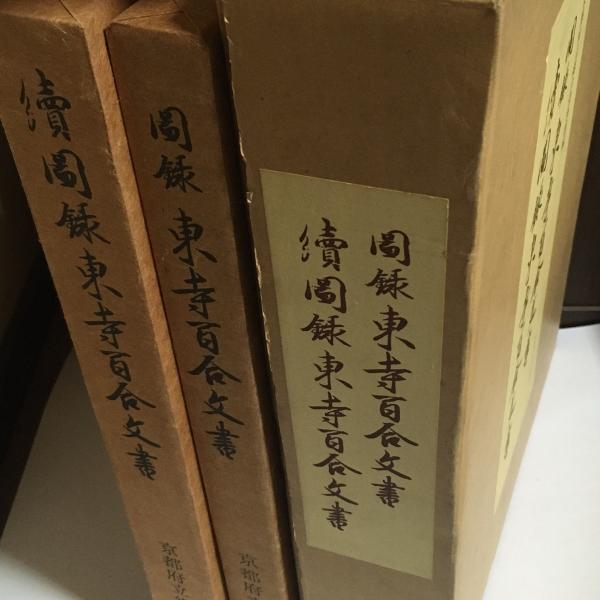 續圖錄東寺百合文書
京都府立
圖錄東寺百合文書
京都府
圖錄東寺百合文書
續圖錄東寺百合文書